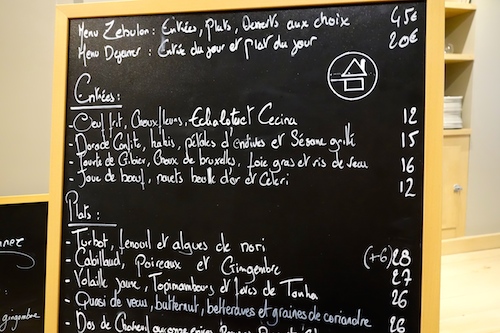 Menu Zébulon: Entrées, Plats, Desserts aux choix 45€
Menu Dejeuner: Entrée du jour et plat du jour 20€
Entrées:
- Oeuf frit, Choux fleurs, Echalote et Cecina 12
- Dorade Confite, radis, pétales d'endives et Sésame grillé 15
- Tourte de Gibier, Choux de bruxelles, foie gras et ris de veau 16
- Joue de boeuf, navets boule d'or et Céleri 12
Plats:
- Turbot, fenouil et algues de nori (+6) 28
- Cabillaud, Poireaux et Gingembre 27
- Volaille jaune, Topinambours et 26
- Quasi de veau, butternut, betteraves et graines de coriandre 26
- Dos de
gingembre